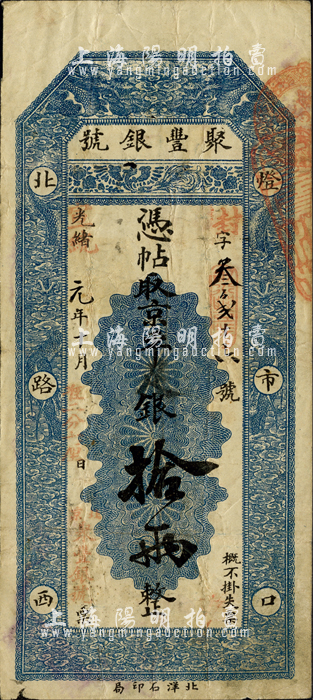 上海陽明拍賣
www.yangmingauction.com
聚豐銀號
燈市口
北路西
字叁 號
憑帖取京 銀拾兩整
光緒元年十 月 日 票
概不掛失票
北洋石印局
上海陽明拍賣
www.yangmingauction.com
上海陽明拍賣
www.yangmingauction.com